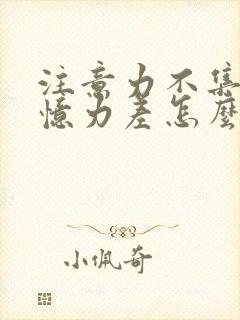 注意力不集
憶力差怎麼
小佩奇